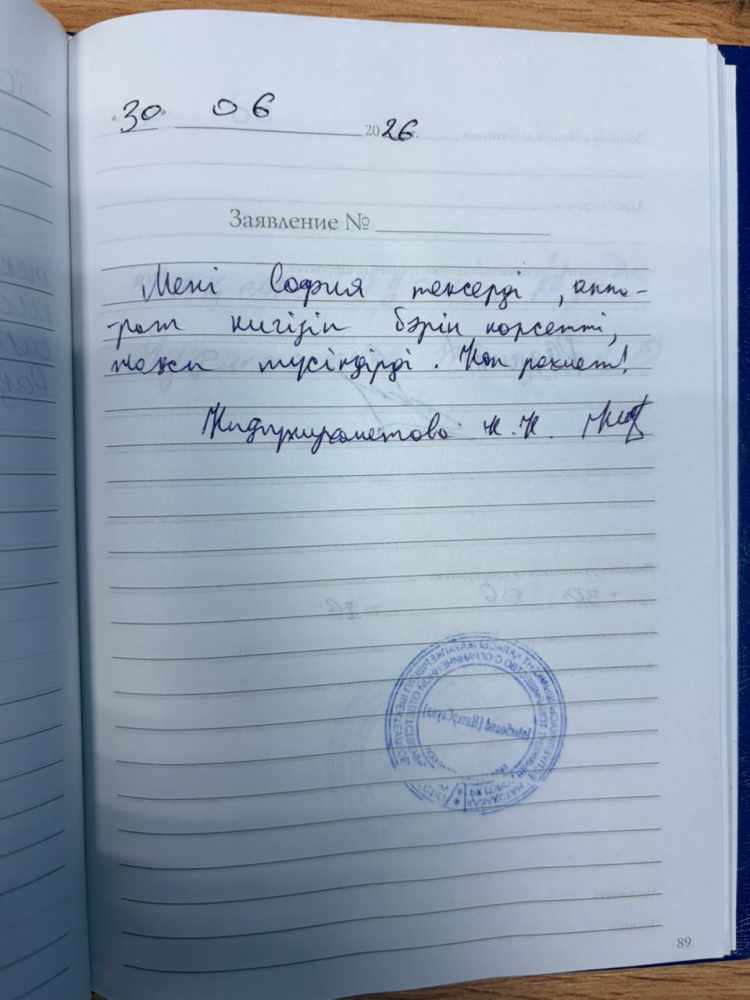 «30» 06 2026 г.
Заявление №
Мені София тексерді, аппа-
-рат кигізіп бәрін көрсетті,
жақсы түсіндірді. Көп рахмет!
н. н.
89